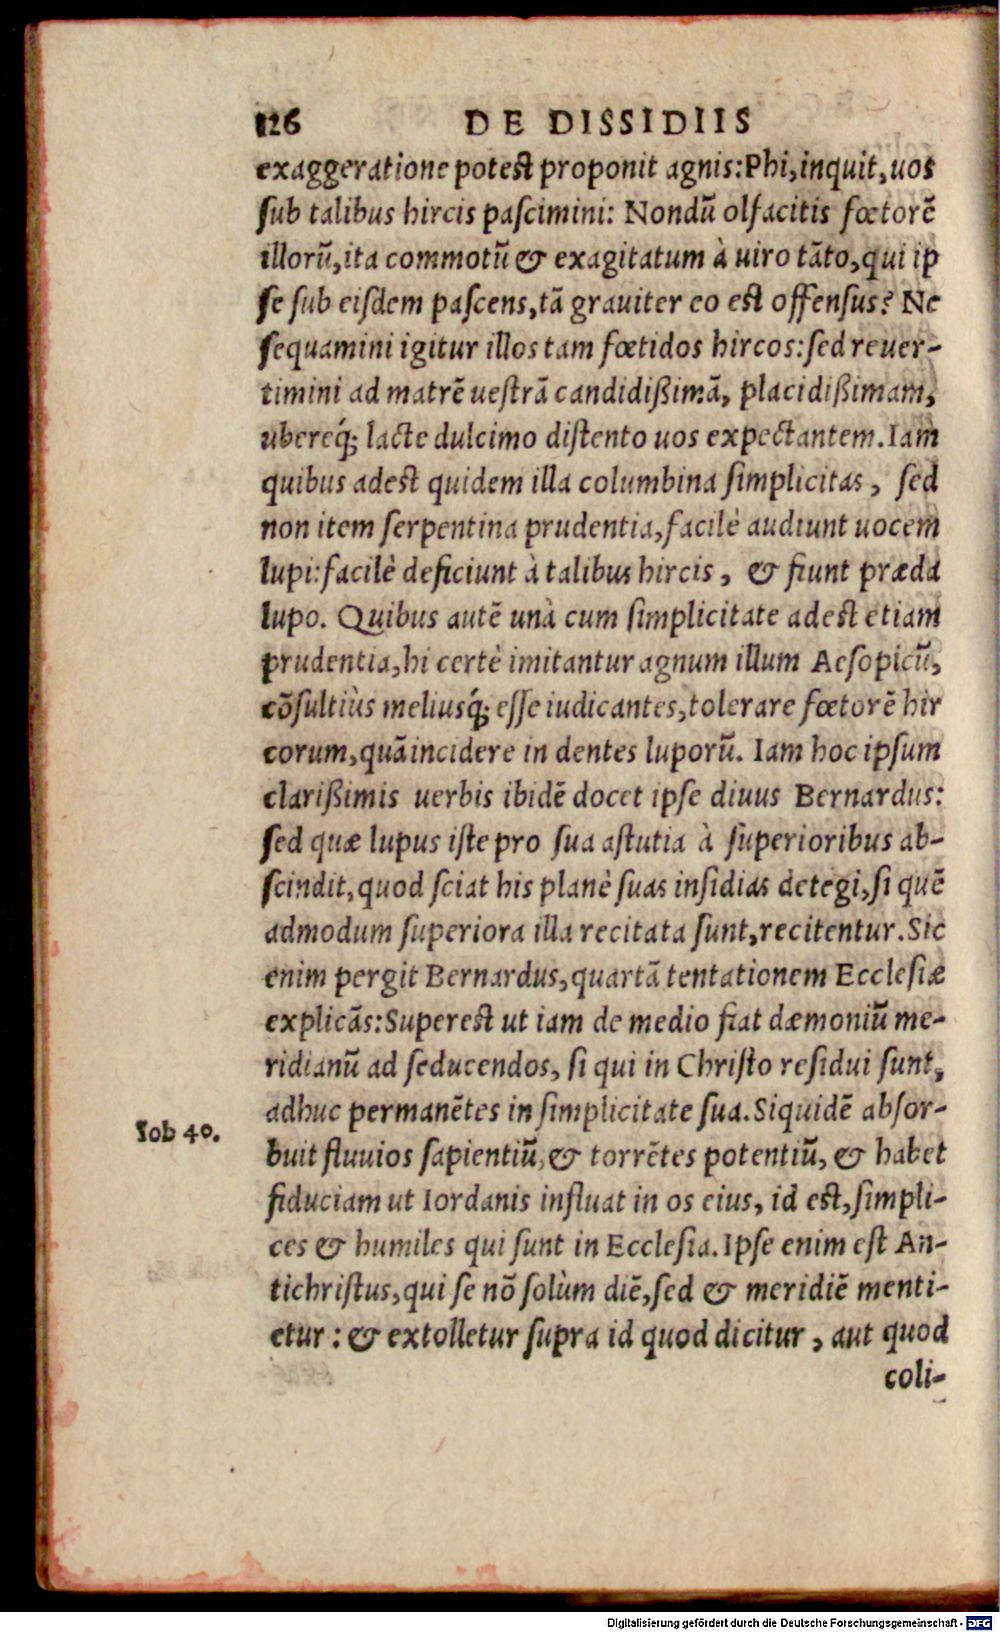 126 DE DISSIDIIS
exaggeratione potest proponit agnis: Phi, inquit, uos
sub talibus hircis pascimini: Nondū olfacitis fœtorē
illorū, ita commotū & exagitatum à uiro tāto, qui ip
se sub eisdem pascens, tā grauiter eo est offensus? Ne
sequamini igitur illos tam fœtidos hircos: sed reuer-
timini ad matrē uestrā candidißimā, placidißimam,
ubereq́; lacte dulcimo distento uos expectantem. Iam
quibus adest quidem illa columbina simplicitas, sed
non item serpentina prudentia, facilè audiunt uocem
lupi: facilè deficiunt à talibus hircis, & fiunt præda
lupo. Quibus autē unà cum simplicitate adest etiam
prudentia, hi certè imitantur agnum illum Aesopicū,
cōsultiùs meliusq́; esse iudicantes, tolerare fœtorē hir
corum, quā incidere in dentes luporū. Iam hoc ipsum
clarißimis uerbis ibidē docet ipse diuus Bernardus:
sed quæ lupus iste pro sua astutia à superioribus ab-
scindit, quod sciat his planè suas insidias detegi, si quē
admodum superiora illa recitata sunt, recitentur. Sic
enim pergit Bernardus, quartā tentationem Ecclesiæ
explicās: Superest ut iam de medio fiat dæmoniū me-
ridianū ad seducendos, si qui in Christo residui sunt,
adhuc permanētes in simplicitate sua. Siquidē absor-
Iob 40.
buit fluuios sapientiū, & torrētes potentiū, & habet
fiduciam ut Iordanis influat in os eius, id est, simpli-
ces & humiles qui sunt in Ecclesia. Ipse enim est An-
tichristus, qui se nō solùm diē, sed & meridiē menti-
etur: & extolletur supra id quod dicitur, aut quod
coli-
Digitalisierung gefördert durch die Deutsche Forschungsgemeinschaft - DFG